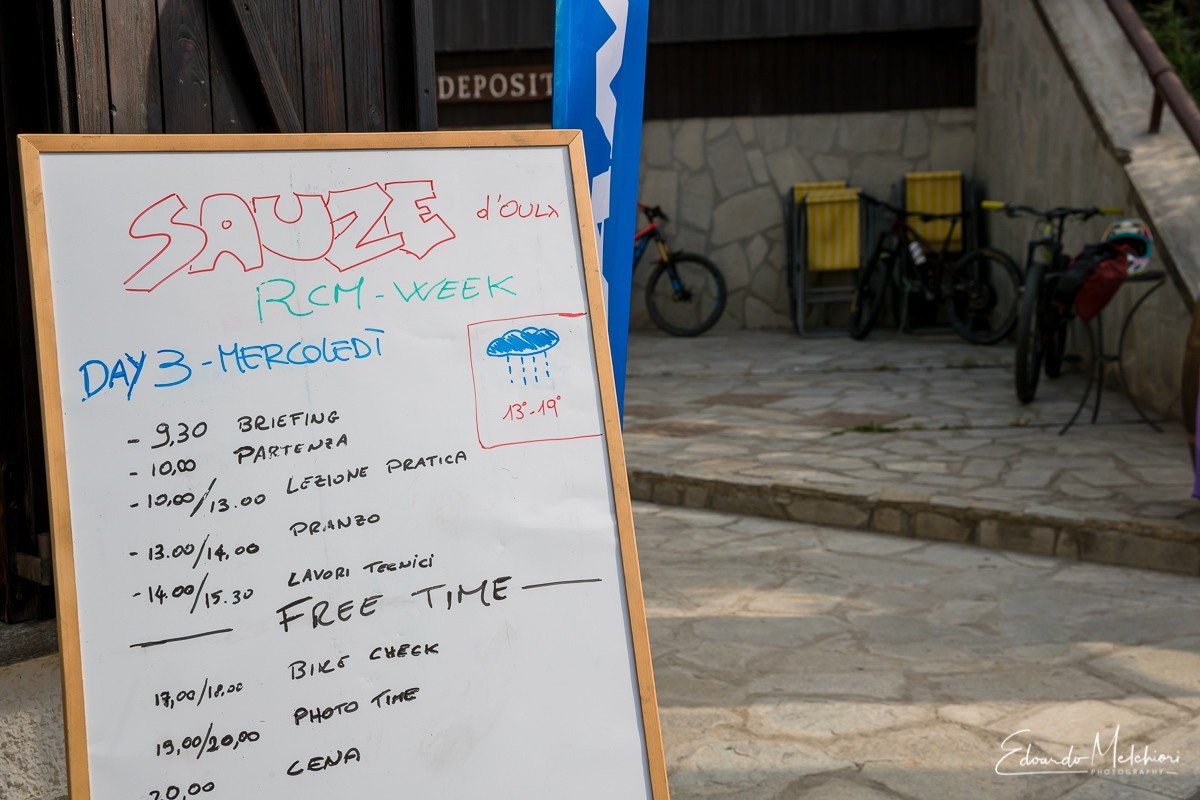 DEPOSIT
SAUZE d'OULX
RCM-WEEK
DAY 3 - MERCOLEDÌ
13°-19°
- 9,30 BRIEFING
- 10,00 PARTENZA
- 10,00/13.00 LEZIONE PRATICA
- 13.00/14,00 PRANZO
- 14.00/15.30 LAVORI TECNICI
FREE TIME
17,00/18,00 BIKE CHECK
19,00/20,00 PHOTO TIME
20,00 CENA
Edoardo Melchiori
PHOTOGRAPHY